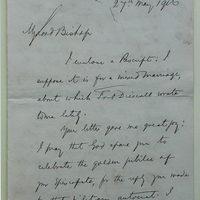 27th May 1906
My Lord Bishop
I enclose a Receipt; I
suppose it is for a mixed marriage,
about which Fr Driscoll wrote
some lately.
Your letter gave me great joy;
I pray that God spare you to
celebrate the golden jubilee of
your Episcopate, for the reply you made
I